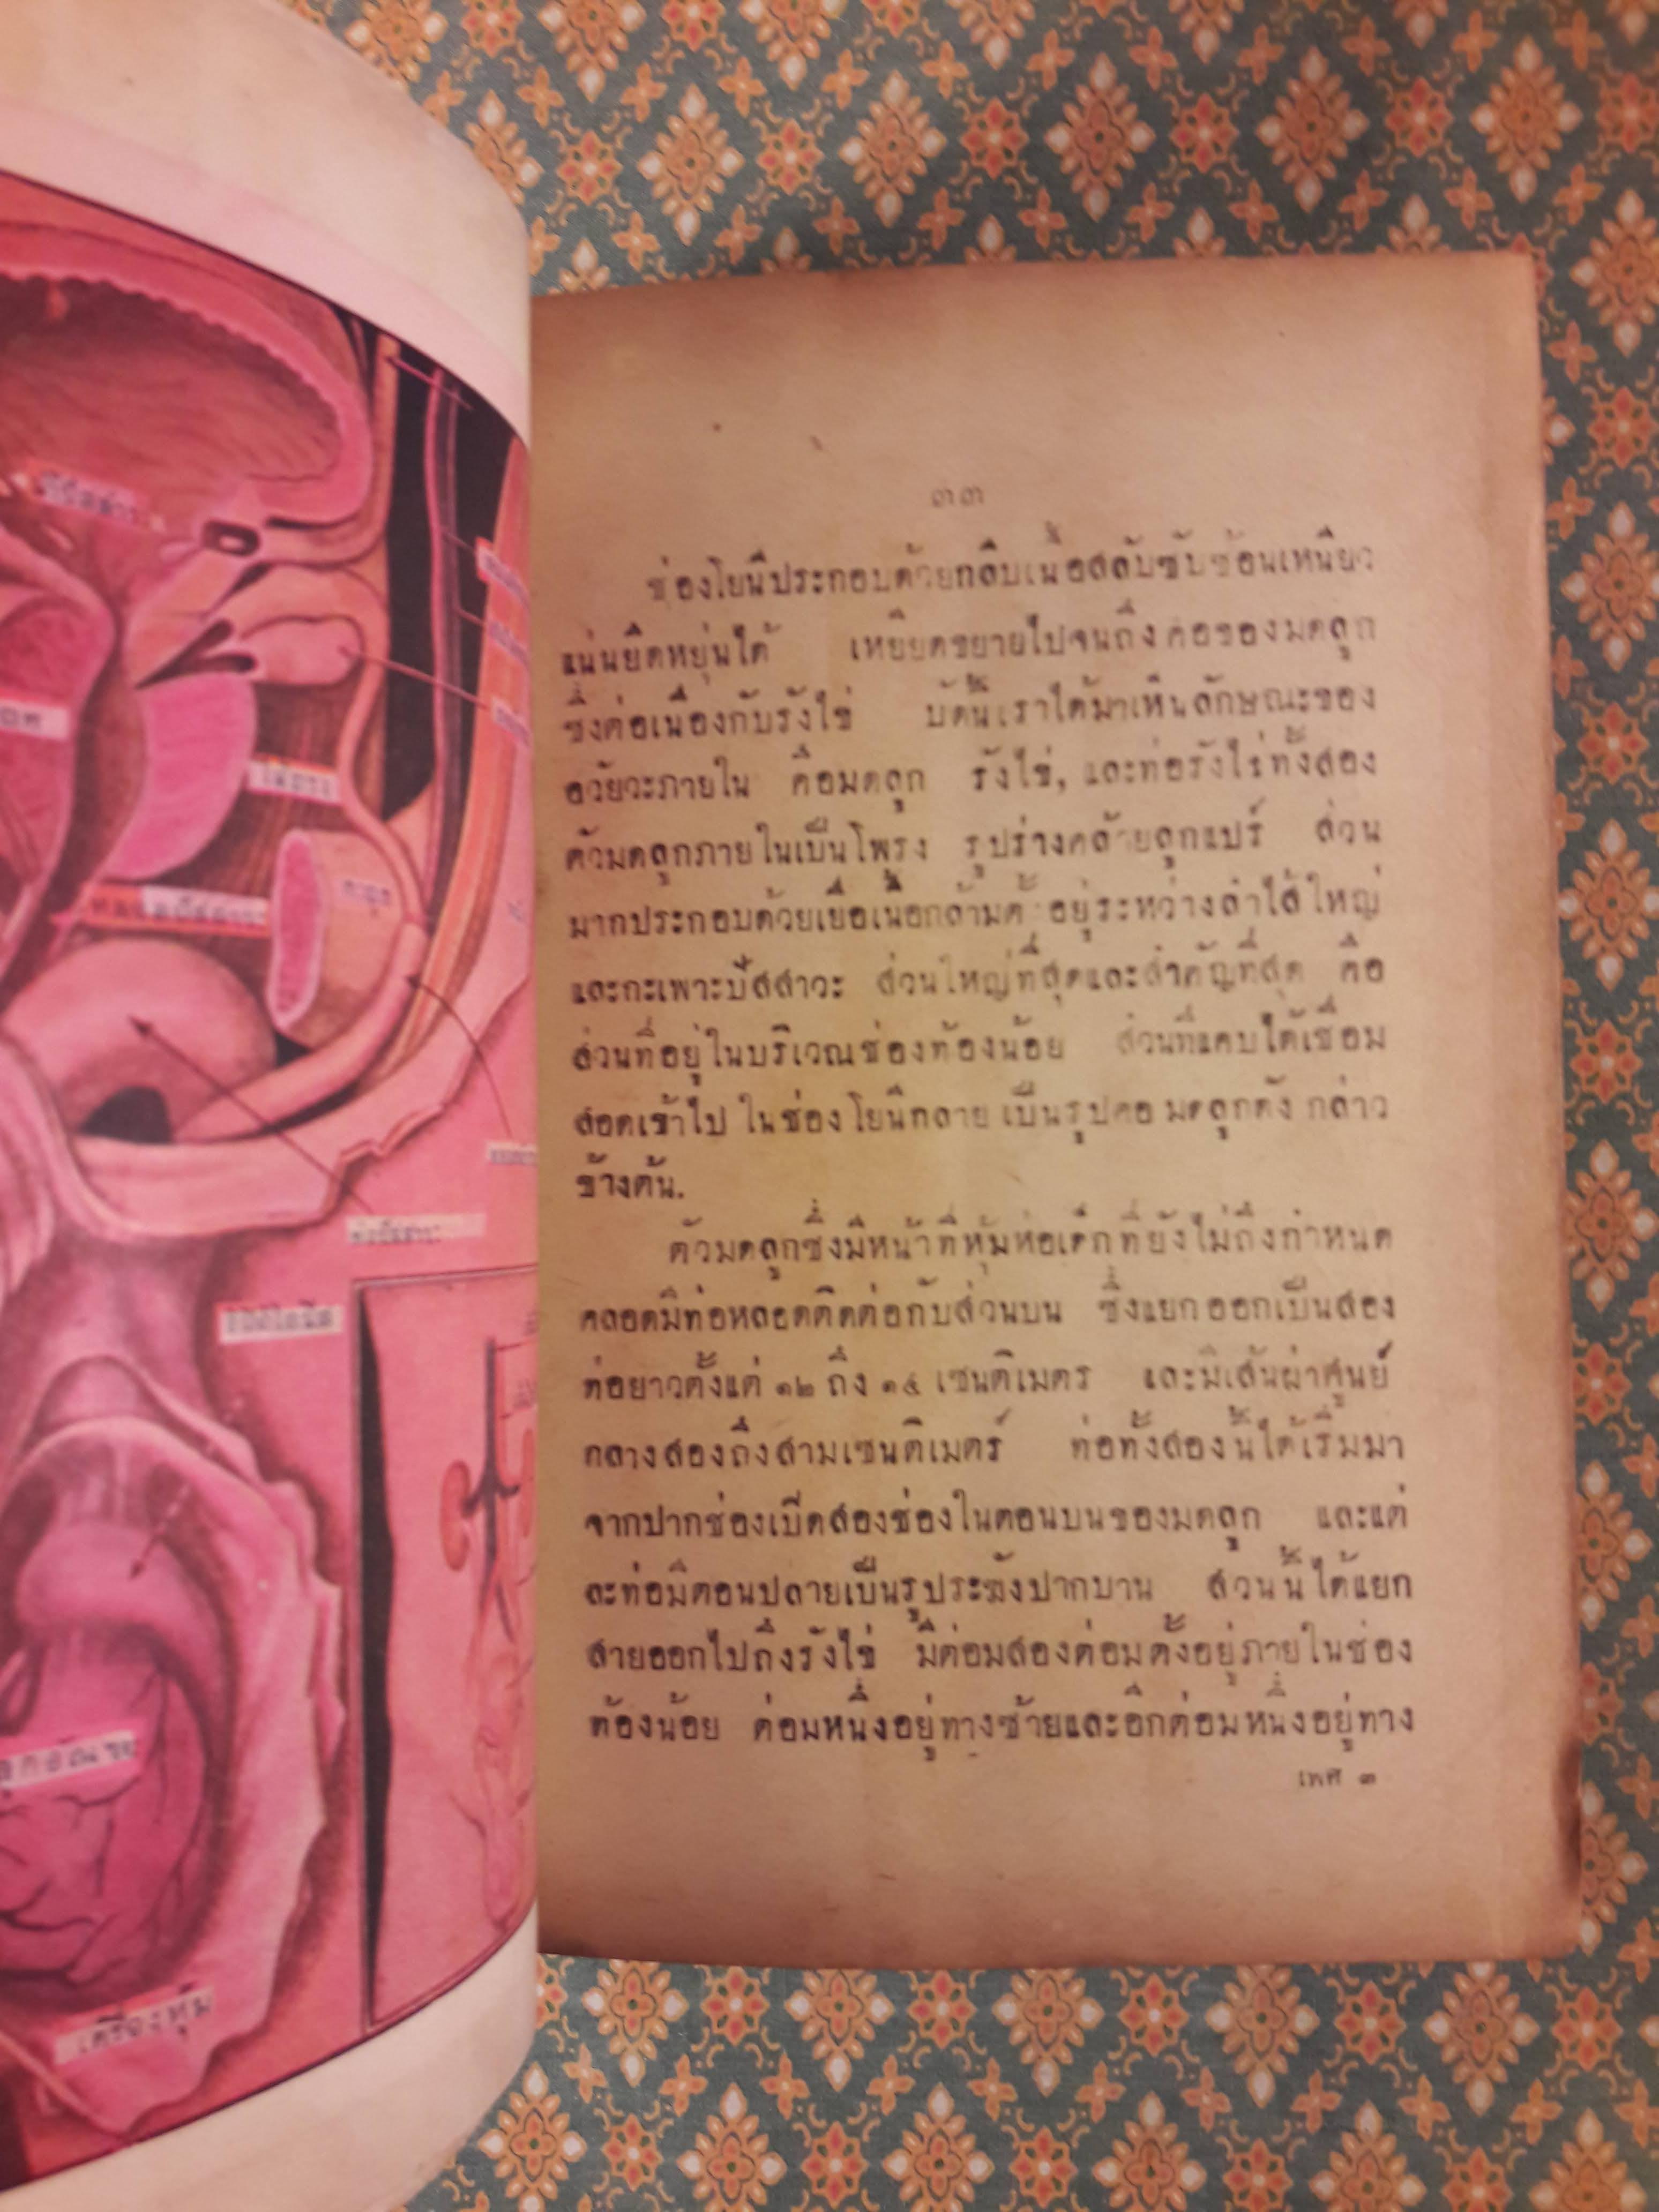 ท่อปัสสาวะ
ช่องโยนี
เครื่องหุ้ม
๓๓
ช่องโยนีประกอบด้วยกลีบเนื้อสลับซับซ้อนเหนียว
แน่นยืดหยุ่นได้ เหยียดขยายไปจนถึงคอของมดลูก
ซึ่งต่อเนื่องกับรังไข่ บัดนี้เราได้มาเห็นลักษณะของ
อวัยวะภายใน คือมดลูก รังไข่, และท่อรังไข่ทั้งสอง
ตัวมดลูกภายในเป็นโพรง รูปร่างคล้ายลูกแปร์ ส่วน
มากประกอบด้วยเยื่อเนื้อกล้ามค้ อยู่ระหว่างลำไส้ใหญ่
และกะเพาะปัสสาวะ ส่วนใหญ่ที่สุดและสำคัญที่สุด คือ
ส่วนที่อยู่ในบริเวณช่องท้องน้อย ส่วนที่แคบได้เชื่อม
สอดเข้าไปในช่องโยนีกลายเป็นรูปคอมดลูกดังกล่าว
ข้างต้น.
ตัวมดลูกซึ่งมีหน้าที่หุ้มห่อเด็กที่ยังไม่ถึงกำหนด
คลอดมีท่อหลอดติดต่อกับส่วนบน ซึ่งแยกออกเป็นสอง
ท่อยาวตั้งแต่ ๑๒ ถึง ๑๔ เซนติเมตร และมีเส้นผ่าศูนย์
กลางสองถึงสามเซนติเมตร์ ท่อทั้งสองนี้ได้เริ่มมา
จากปากช่องเปิดสองช่องในตอนบนของมดลูก และแต่
ละท่อมีตอนปลายเป็นรูประฆังปากบาน ส่วนนี้ได้แยก
สายออกไปถึงรังไข่ มีต่อมสองต่อมตั้งอยู่ภายในช่อง
ท้องน้อย ต่อมหนึ่งอยู่ทางซ้ายและอีกต่อมหนึ่งอยู่ทาง
เพศ ๓